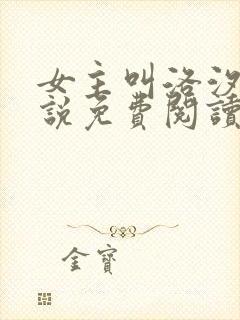 女主叫洛汐
說免費閱讀
金寶